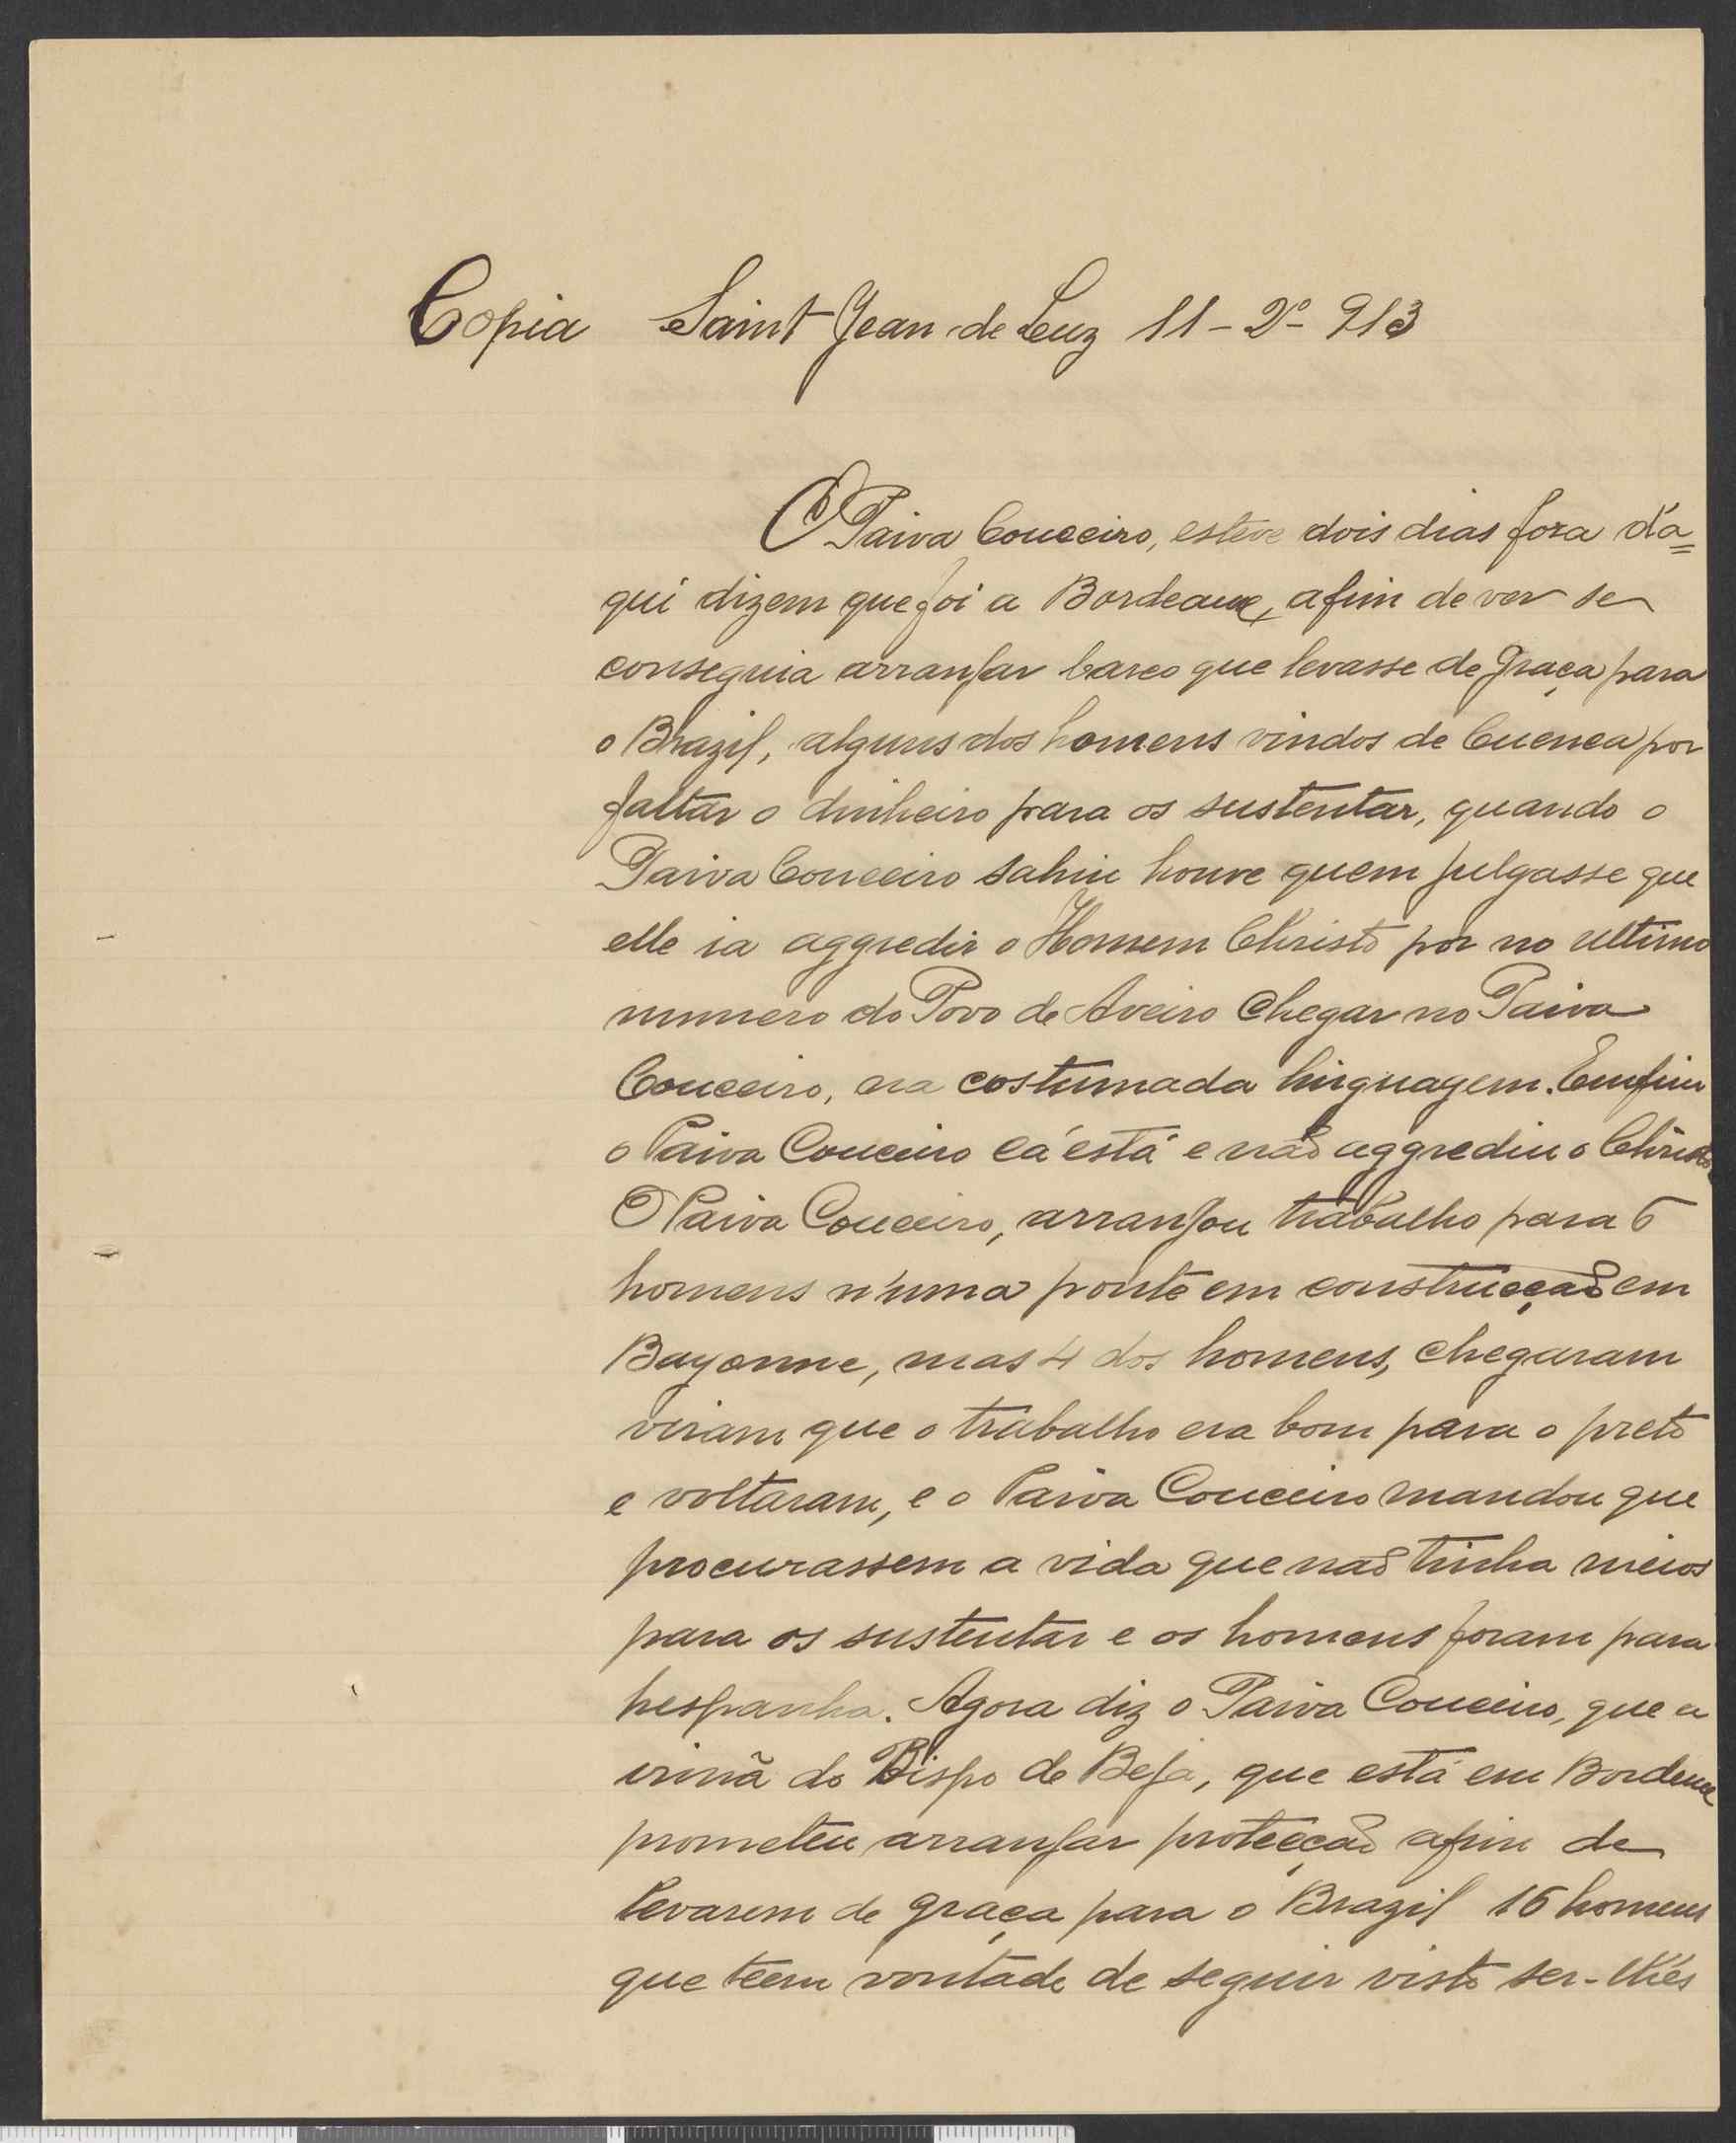 Copia Saint Jean de Luz 11-2º-913
O Paiva Couceiro, esteve dois dias fora d'a=
qui dizem que foi a Bordeaux, afim de ver se
conseguia arranjar barco que levasse de graça para
o Brazil, alguns dos homens vindos de Cuenca por
faltar o dinheiro para os sustentar, quando o
Paiva Couceiro sahiu houve quem julgasse que
elle ia aggredir o Homem Christo por no ultimo
numero do Povo de Aveiro chegar no Paiva
Couceiro, na costumada linguagem. Emfim
o Paiva Couceiro cá está e não aggrediu o Christo.
O Paiva Couceiro, arranjou trabalho para 6
homens n'uma ponte em construcção em
Bayonne, mas 4 dos homens, chegaram
viram que o trabalho era bom para o preto
e voltaram, e o Paiva Couceiro mandou que
procurassem a vida que não tinha meios
para os sustentar e os homens foram para
hespanha. Agora diz o Paiva Couceiro, que a
irmã do Bispo de Beja, que está em Bordeaux
prometeu arranjar protecção afim de
levarem de graça para o Brazil 16 homens
que teem vontade de seguir visto ser-lhes